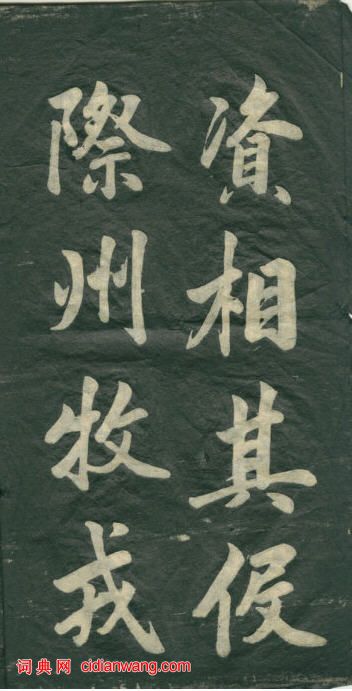 資相其役
際州牧戎
词典网 cidianwang.com